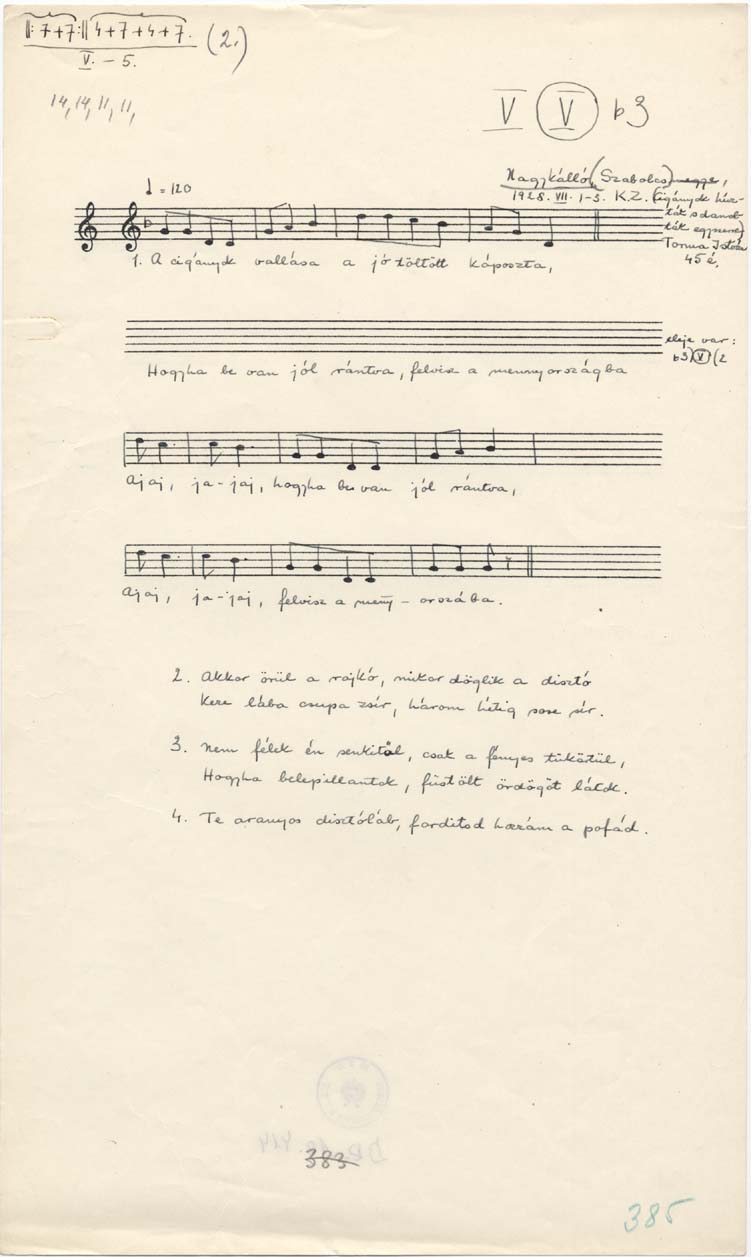 ‖: 7+7 :‖ 4+7+4+7. (2.)
V. – 5.
14, 14, 11, 11,
V (V) b3
♩ = 120
Nagykálló, (Szabolcs) megye,
1928. VII. 1-3. K.Z. (cigányok húz-
ták s danol-
ták egyszerre)
Torma István
45 é.
1. A cigányok vallása a jó töltött káposzta,
eleje var:
b3) (V) (2
Hogyha be van jól rántva, felvisz a mennyországba
Ajaj, ja-jaj, hogyha be van jól rántva,
Ajaj, ja-jaj, felvisz a meny-országba.
2. Akkor örül a rajkó, mikor döglik a disztó
Kere lába csupa zsír, három hétig sose sír.
3. Nem félek én senkitől, csak a fényes tükörtül,
Hogyha belepillantok, füstölt ördögöt látok.
4. Te aranyos disztóláb, forditsd hozám a pofád.
383
385